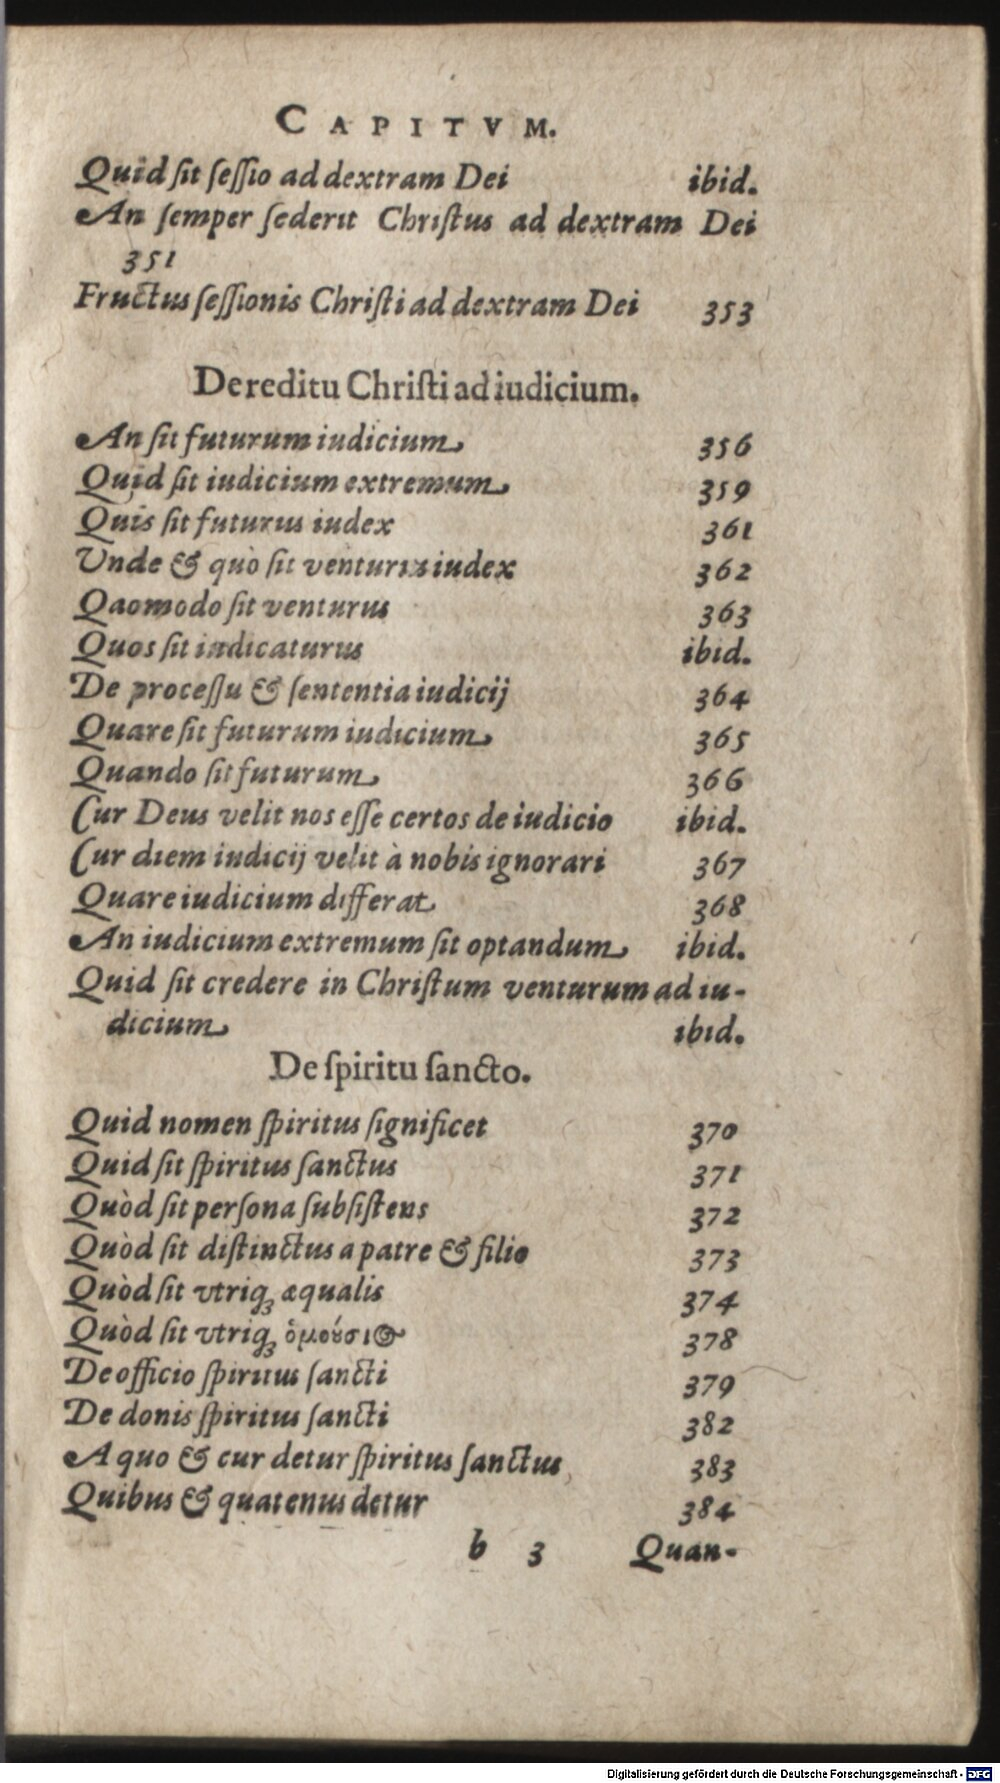 CAPITVM.
Quid ſit ſeſſio ad dextram Dei ibid.
An ſemper ſederit Chriſtus ad dextram Dei
351
Fructus ſeſſionis Chriſti ad dextram Dei 353
De reditu Chriſti ad iudicium.
An ſit futurum iudicium 356
Quid ſit iudicium extremum 359
Quis ſit futurus iudex 361
Unde & quò ſit venturus iudex 362
Qaomodo ſit venturus 363
Quos ſit iudicaturus ibid.
De proceſſu & ſententia iudicij 364
Quare ſit futurum iudicium 365
Quando ſit futurum 366
Cur Deus velit nos eſſe certos de iudicio ibid.
Cur diem iudicij velit à nobis ignorari 367
Quare iudicium differat 368
An iudicium extremum ſit optandum ibid.
Quid ſit credere in Chriſtum venturum ad iu-
dicium ibid.
De ſpiritu ſancto.
Quid nomen ſpiritus ſignificet 370
Quid ſit ſpiritus ſanctus 371
Quòd ſit perſona ſubſiſtens 372
Quòd ſit diſtinctus a patre & filio 373
Quòd ſit vtriq; æqualis 374
Quòd ſit vtriq; ὁμούσιος 378
De officio ſpiritus ſancti 379
De donis ſpiritus ſancti 382
A quo & cur detur ſpiritus ſanctus 383
Quibus & quatenus detur 384
b 3 Quan-
Digitalisierung gefördert durch die Deutsche Forschungsgemeinschaft - DFG